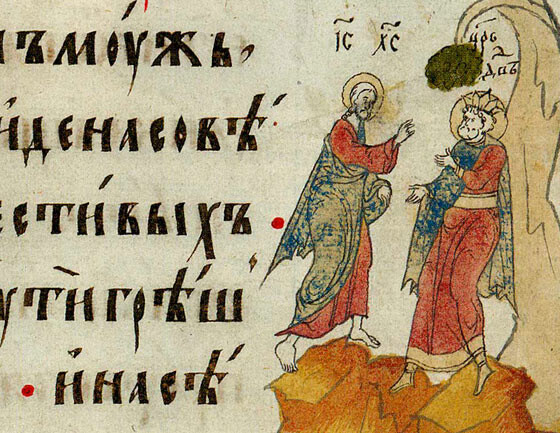 нъ моу́жь·
и́де на совѣ́
ести́выхъ ·
ути́ грѣ́ш
· и́ на сѣ́
І҃С Х҃С
ц҃рь
дв҃ъ